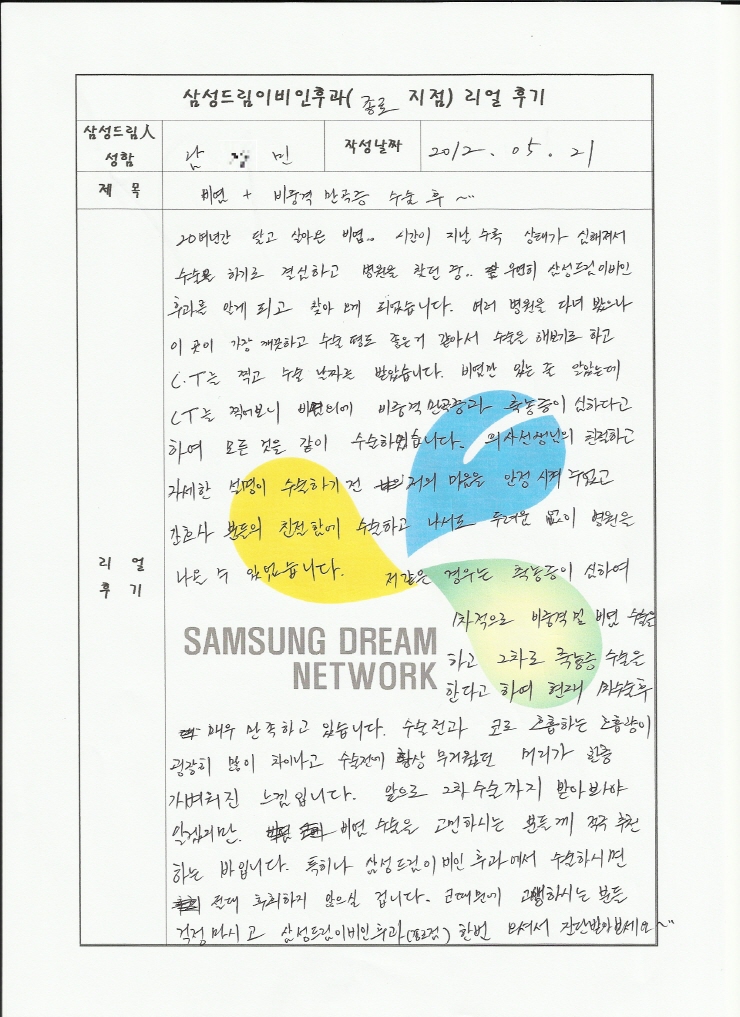 삼성드림이비인후과( 종로 지점) 리얼 후기
삼성드림人 성함
남 민
작성날짜
2012. 05. 21
제 목
비염 + 비중격 만곡증 수술 후 ~
리 얼 후 기
20여년간 달고 살아온 비염.. 시간이 지날 수록 상태가 심해져서
수술을 하기로 결심하고 병원을 찾던 중.. 우연히 삼성드림이비인
후과를 알게 되고 찾아 오게 되었습니다. 여러 병원을 다녀 봤으나
이 곳이 가장 깨끗하고 수술 평도 좋은거 같아서 수술을 해보기로 하고
C.T를 찍고 수술 날짜를 받았습니다. 비염만 있는 줄 알았는데
CT를 찍어보니 비염외에 비중격만곡증과 축농증이 심하다고
하여 모든 것을 같이 수술하였습니다. 의사선생님의 친절하고
자세한 설명이 수술하기 전 저의 마음을 안정 시켜 주었고
간호사 분들의 친절함에 수술하고 나서도 두려움 없이 병원을
나올 수 있었습니다. 저같은 경우는 축농증이 심하여
1차적으로 비중격 및 비염 수술을
SAMSUNG DREAM
NETWORK
하고 2차로 축농증 수술을
한다고 하여 현재 수술후
매우 만족하고 있습니다. 수술전과 코로 호흡하는 호흡량이
굉장히 많이 차이나고 수술전에 항상 무거웠던 머리가 한층
가벼워진 느낌입니다. 앞으로 2차 수술까지 받아봐야
알겠지만. 비염 수술을 고민하시는 분들께 적극 추천
하는 바입니다. 특히나 삼성드림이비인후과에서 수술하시면
절대 후회하지 않으실 겁니다. 코때문에 고생하시는 분들
걱정 마시고 삼성드림이비인후과(종로점) 한번 오셔서 진단받아보세요~